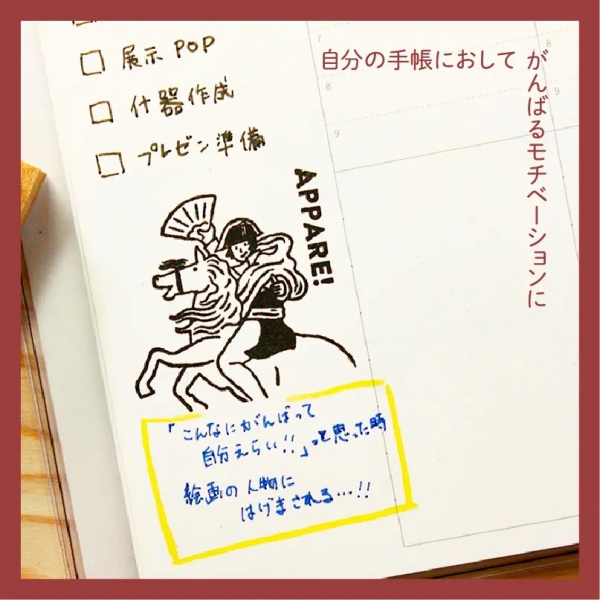 自分の手帳におして
がんばるモチベーションに
展示POP
什器作成
プレゼン準備
APPARE!
「こんなにがんばって
自分えらい!!」って思った時
絵画の人物に
はげまされる…!!
7
8
9
8
9